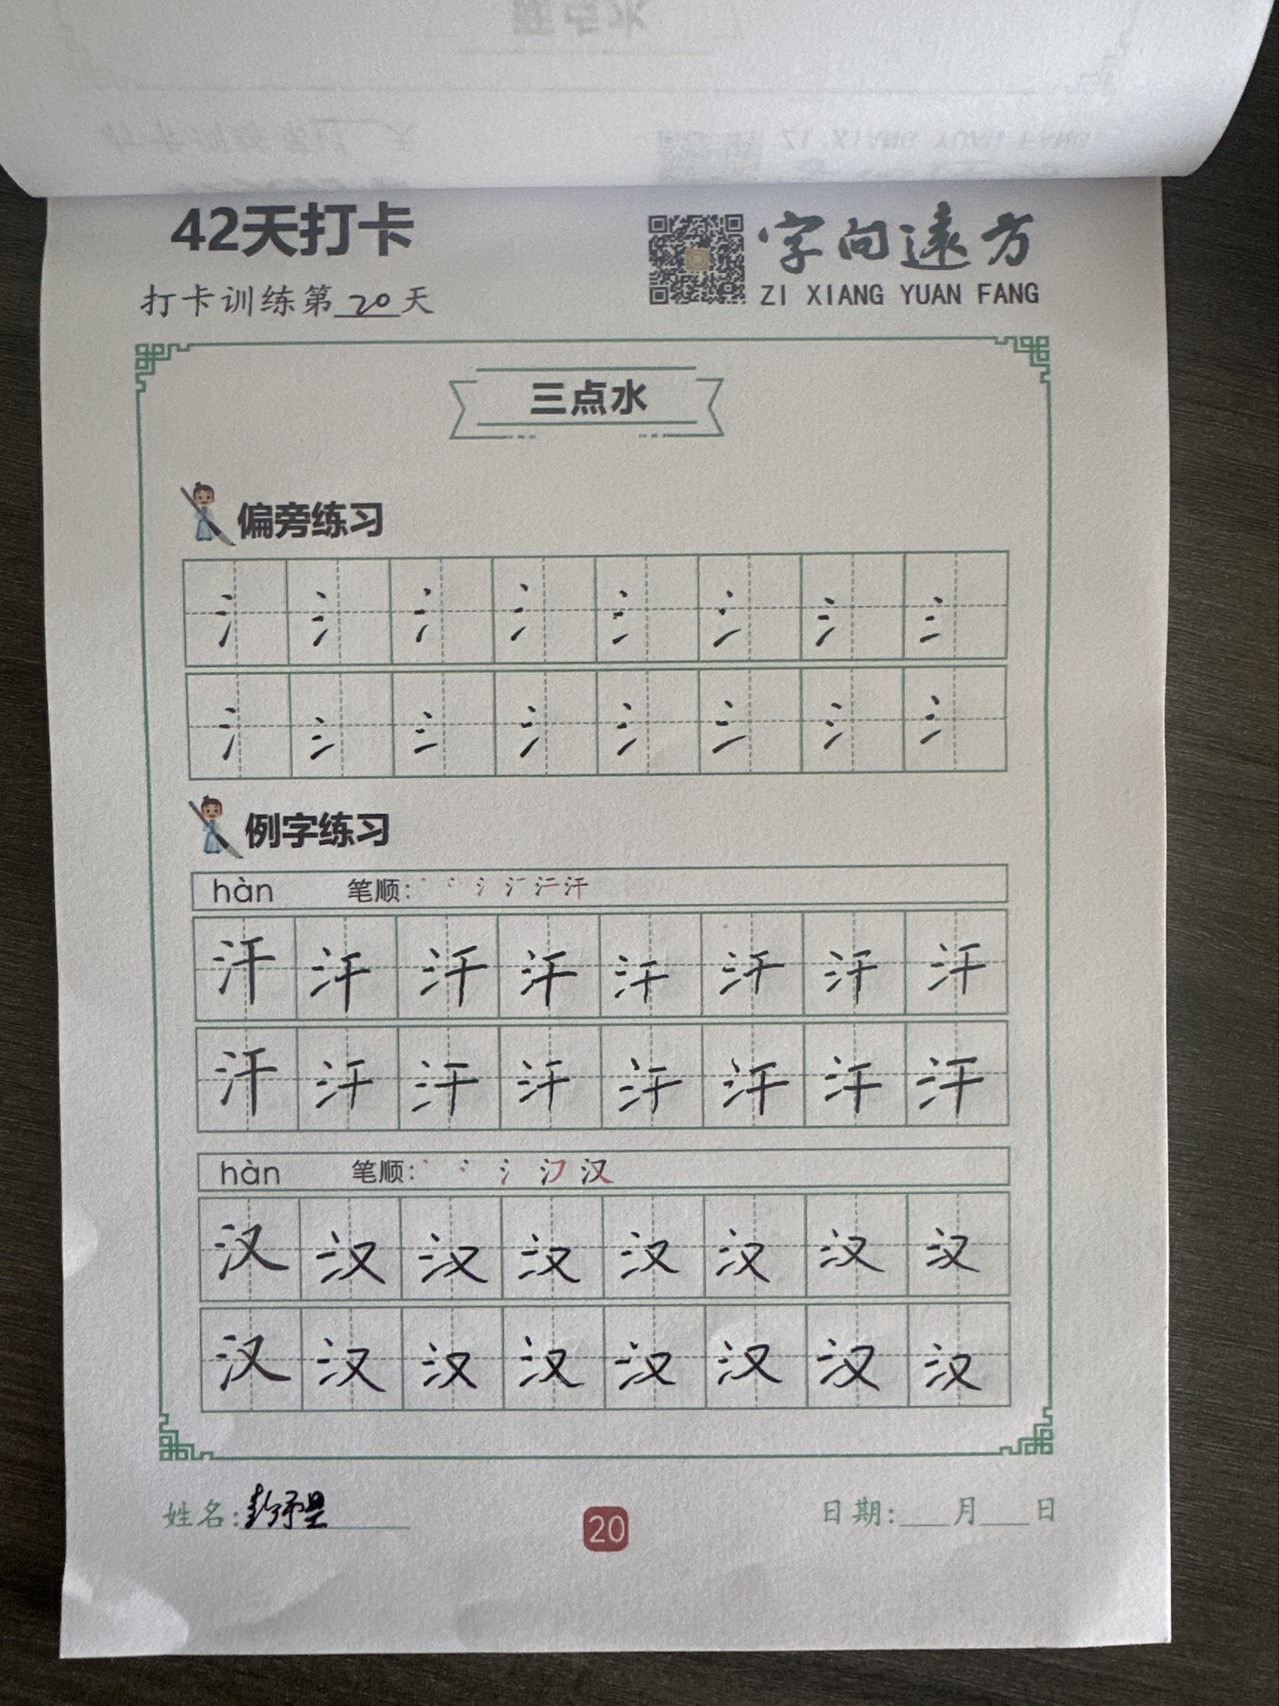 42天打卡
字向遠方
打卡训练第20天
ZI XIANG YUAN FANG
三点水
偏旁练习
氵氵氵氵氵氵氵氵
氵氵氵氵氵氵氵氵
例字练习
hàn 笔顺:
汗汗汗汗汗汗汗汗
汗汗汗汗汗汗汗汗
hàn 笔顺: 汉
汉汉汉汉汉汉汉汉
汉汉汉汉汉汉汉汉
姓名:
20
日期:___月___日